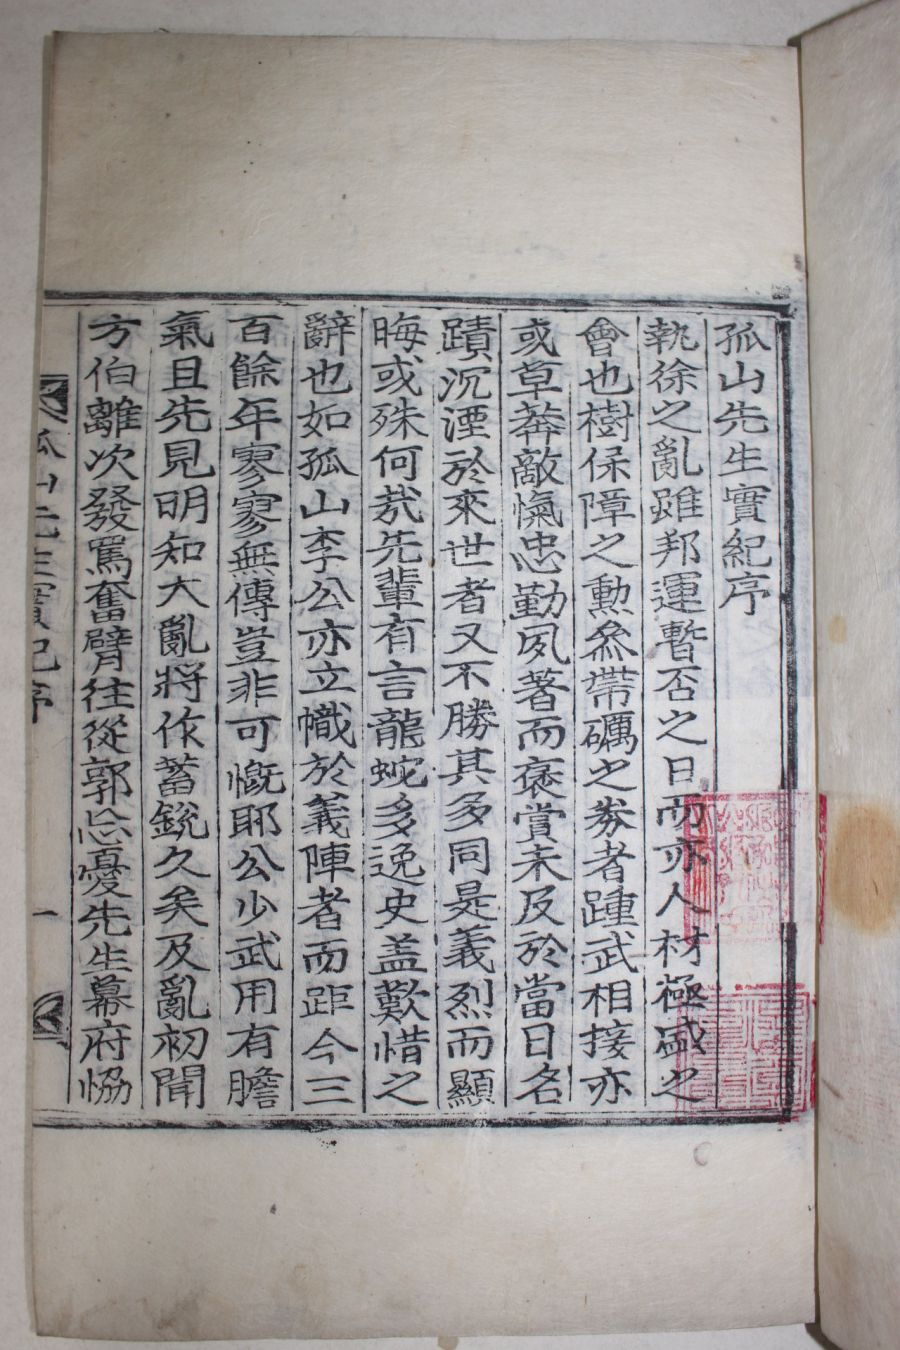 孤山先生實紀序
執徐之亂雖邦運暫否之日而亦人材極盛之
會也樹保障之勳叅帶礪之券者踵武相接亦
或草莾敵愾忠勤夙著而褒賞未及於當日名
蹟沉湮於來世者又不勝其多同是義烈而顯
晦或殊何㢤先輩有言龍蛇多逸史盖歎惜之
辭也如孤山李公亦立幟於義陣者而距今三
百餘年寥寥無傳豈非可慨耶公少武用有膽
氣且先見明知大亂將作蓄銳久矣及亂初聞
方伯離次發罵奮臂往從郭忘憂先生幕府恊
孤山先生實紀序
一